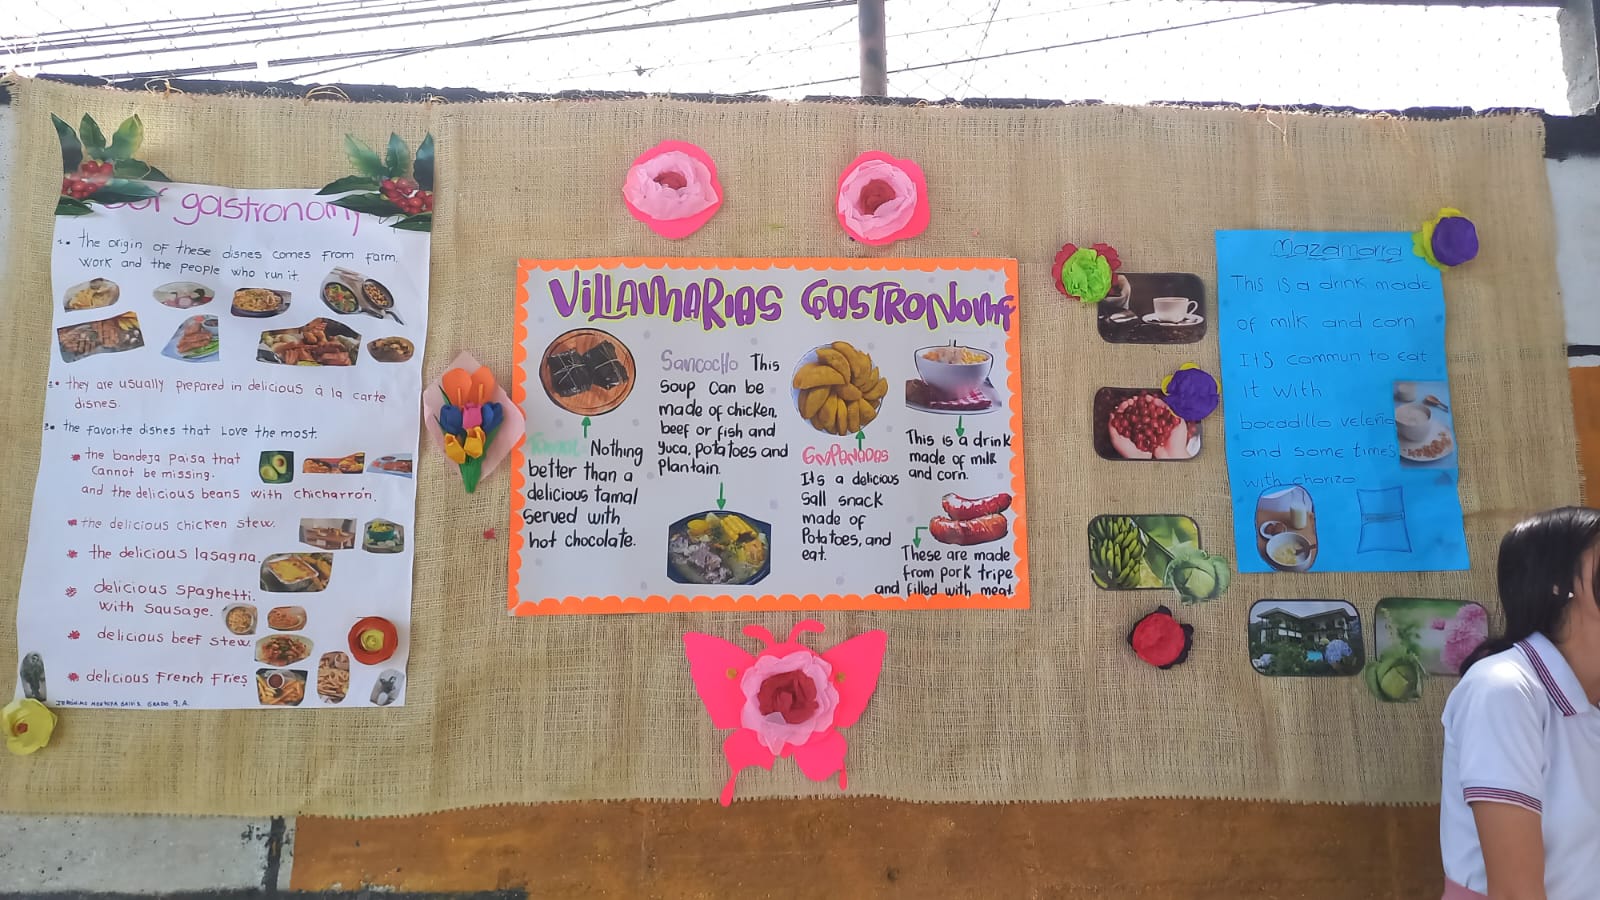 of gastronomy
1. the origin of these dishes comes from farm.
work and the people who run it.
2. they are usually prepared in delicious à la carte
dishes.
3. the favorite dishes that love the most.
* the bandeja paisa that
cannot be missing.
and the delicious beans with chicharrón.
* the delicious chicken stew.
* the delicious lasagna.
* delicious spaghetti.
with sausage.
* delicious beef stew.
* delicious French Fries
GRADO 9.A.
VILLAMARIAS GASTRONOMY
Tamal Nothing
better than a
delicious tamal
served with
hot chocolate.
Sancocho This
soup can be
made of chicken,
beef or fish and
yuca, potatoes and
plantain.
Empanadas
Its a delicious
Sall snack
made of
Potatoes, and
eat.
This is a drink
made of milk
and corn.
These are made
from pork tripe
and filled with meat.
Mazamorra
This is a drink made
of milk and corn
Its commun to eat
it with
bocadillo veleño
and some times
with chorizo